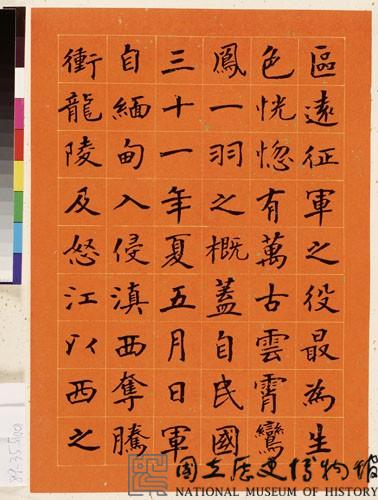 區遠征軍之役最為生
色恍惚有萬古雲霄鸞
鳳一羽之概蓋自民國
三十一年夏五月日軍
自緬甸入侵滇西奪騰
衝龍陵及怒江以西之
國立歷史博物館
NATIONAL MUSEUM OF HISTORY